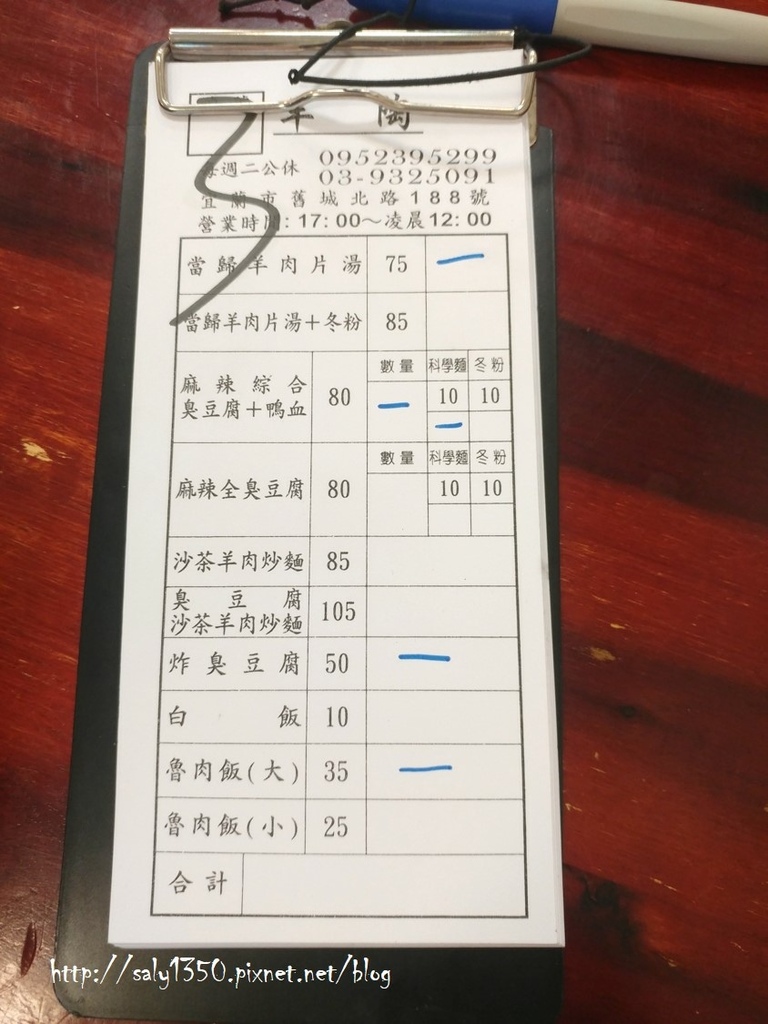 3
羊 岡
每週二公休 0952395299
03-9325091
宜蘭市舊城北路188號
營業時間:17:00～凌晨12:00
當歸羊肉片湯 75 一
當歸羊肉片湯＋冬粉 85
麻辣綜合
臭豆腐＋鴨血 80 數量 科學麵 冬粉
一 10 10
一
麻辣全臭豆腐 80 數量 科學麵 冬粉
10 10
沙茶羊肉炒麵 85
臭豆腐
沙茶羊肉炒麵 105
炸臭豆腐 50 一
白飯 10
魯肉飯(大) 35 一
魯肉飯(小) 25
合計
http://saly1350.pixnet.net/blog